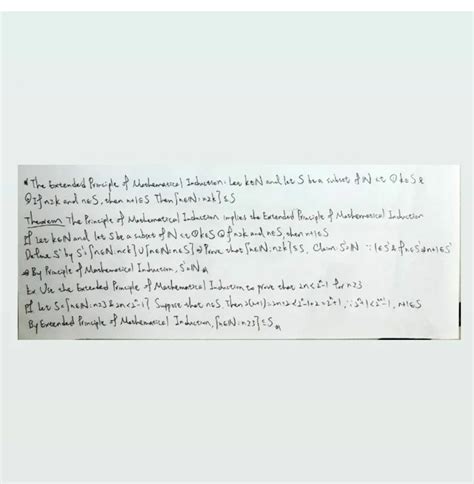 * The Extended Principle of Mathematical Induction: Let k∈N and let S be a subset of N s.t. ① k∈S &
② If n≥k and n∈S, then n+1∈S Then {n∈N: n≥k}⊆S
Theorem The Principle of Mathematical Induction implies the Extended Principle of Mathematical Induction
pf Let k∈N and let S be a subset of N s.t. ① k∈S ② If n≥k and n∈S, then n+1∈S
Define S' by S'={n∈N: n<k}∪{n∈N: n∈S} Prove that {n∈N: n≥k}⊆S, Claim S'=N ∵ 1∈S' & if n∈S' n+1∈S'
⇒ By Principle of Mathematical Induction, S'=N
Ex Use the Extended Principle of Mathematical Induction to prove that 2n<2ⁿ-1 for n≥3
pf Let S={n∈N: n≥3 & 2n<2ⁿ-1} Suppose that n∈S. Then 2(n+1)=2n+2<2ⁿ-1+2=2ⁿ+1, n+1∈S
By Extended Principle of Mathematical Induction, {n∈N: n≥3}⊆S